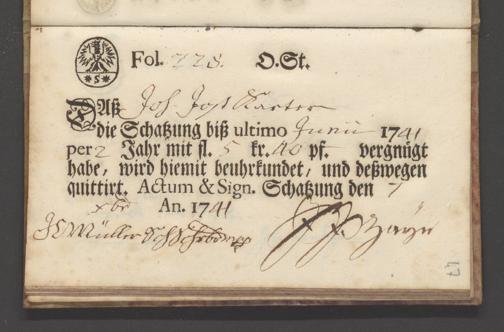 Fol. 228. O.St.
Daß Joh. Jost Karter
die Schatzung biß ultimo Junii 1741
per 2 Jahr mit fl. 5 kr. 40 pf. vergnügt
habe, wird hiemit beuhrkundet, und deßwegen
quittirt. Actum & Sign. Schatzung den 7
xbr An. 1741
Müller
47